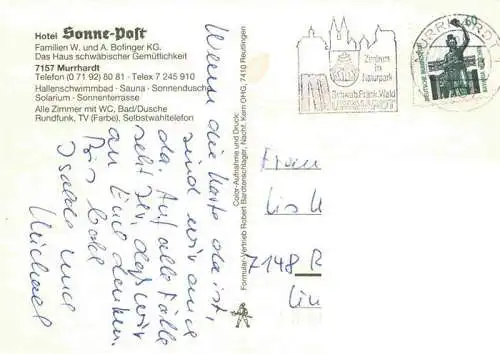 Hotel Sonne-Post
Familien W. und A. Bofinger KG.
Das Haus schwäbischer Gemütlichkeit
7157 Murrhardt
Telefon (0 71 92) 80 81 · Telex 7 245 910
Hallenschwimmbad · Sauna · Sonnendusche
Solarium · Sonnenterrasse
Alle Zimmer mit WC, Bad/Dusche
Rundfunk, TV (Farbe), Selbstwahltelefon
Wenn die Karte da ist,
sind wir auch
da. Auf alle Fälle
seht Ihr, daß wir
an Euch denken.
Bis bald
Isolde und
Michael
Color-Aufnahme und Druck:
Formular-Vertrieb Robert Bardtenschlager, Nachf. Kern OHG, 7410 Reutlingen
Zentrum
im
Naturpark
Schwäb. Fränk. Wald
MURRHARDT
MURRHARDT
60
Frau
7148 R